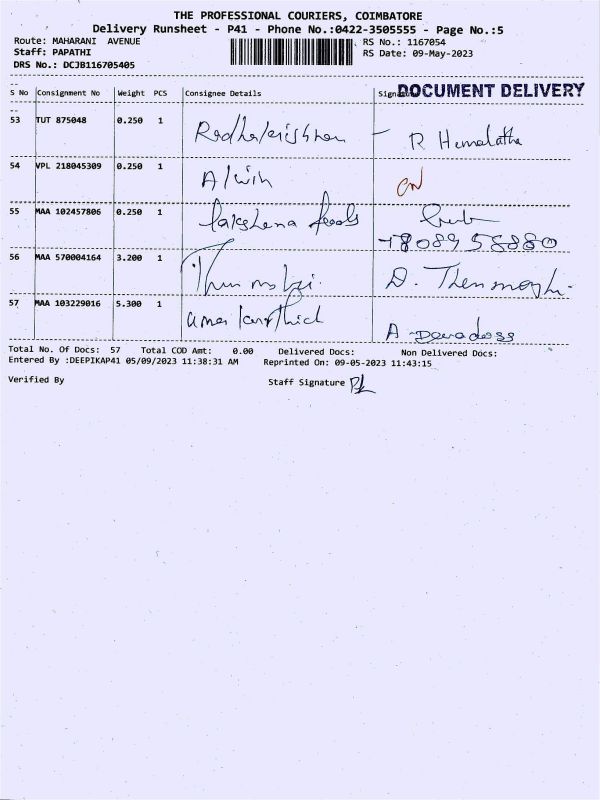 THE PROFESSIONAL COURIERS, COIMBATORE
Delivery Runsheet - P41 - Phone No.:0422-3505555 - Page No.:5
Route: MAHARANI AVENUE RS No.: 1167054
Staff: PAPATHI RS Date: 09-May-2023
DRS No.: DCJB116705405
DOCUMENT DELIVERY
S No Consignment No Weight PCS Consignee Details
53 TUT 875048 0.250 1 Radhakrishnan - R Hemalatha
54 VPL 218045309 0.250 1 Alwin
55 MAA 102457806 0.250 1 lakshena foods
56 MAA 570004164 3.200 1 D. Thenmozhi.
57 MAA 103229016 5.300 1 A. Devadoss
Total No. Of Docs: 57 Total COD Amt: 0.00 Delivered Docs: Non Delivered Docs:
Entered By :DEEPIKAP41 05/09/2023 11:38:31 AM Reprinted On: 09-05-2023 11:43:15
Verified By Staff Signature